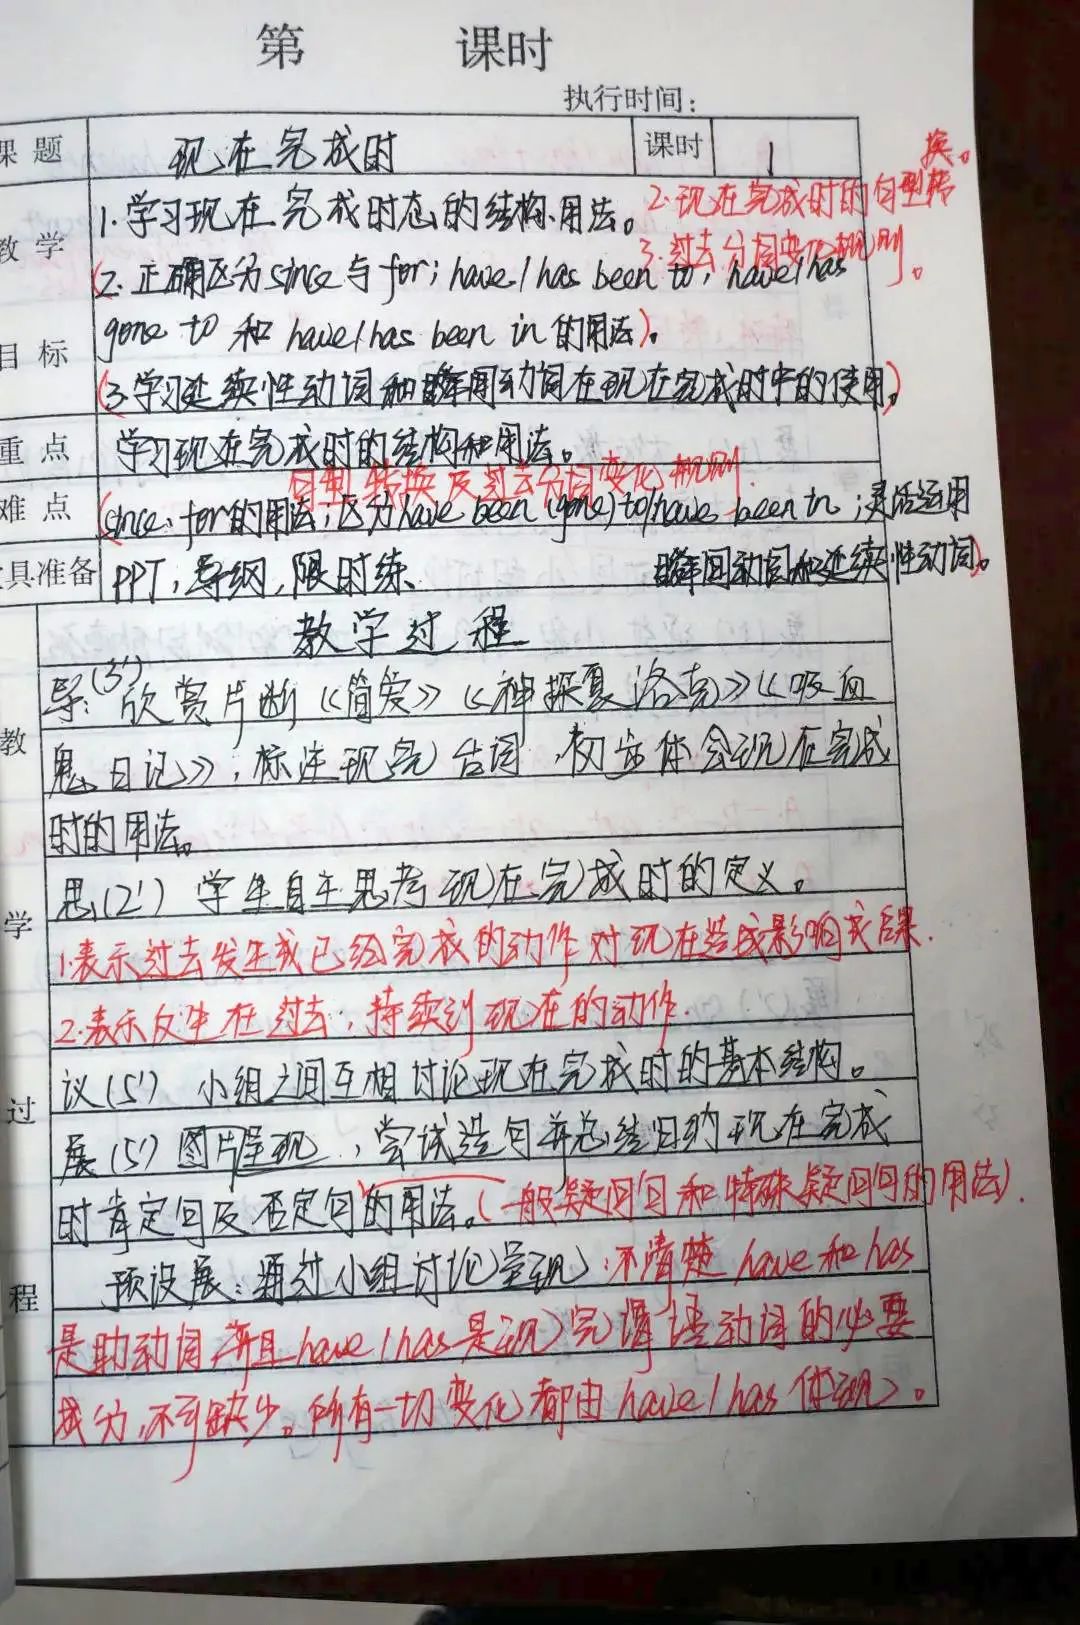 第 课时
执行时间：
课题 现在完成时 课时 1
换。
1.学习现在完成时态的结构、用法。
2.现在完成时的句型转
3.过去分词变化规则。
教学
(2.正确区分since与for；have/has been to，have/has
gone to 和 have/has been in 的用法)。
目标
(3.学习延续性动词和瞬间动词在现在完成时中的使用)。
重点 学习现在完成时的结构和用法。
句型转换及过去分词变化规则.
难点 (since、for的用法；区分have been (gone) to/have been in；灵活运用
瞬间动词和延续性动词)。
具准备 PPT，导纲，限时练.
教学过程
教
学
过
程
导：(3')欣赏片断《简爱》《神探夏洛克》《吸血
鬼日记》，标注现完台词，初步体会现在完成
时的用法。
思(2') 学生自主思考现在完成时的定义。
1.表示过去发生或已经完成的动作对现在造成影响或后果.
2.表示反生在过去，持续到现在的动作.
议(5') 小组之间互相讨论现在完成时的基本结构。
展(5')图片呈现，尝试造句并总结归纳现在完成
时肯定句及否定句的用法。(一般疑问句和特殊疑问句的用法).
预设展：通过小组讨论呈现：不清楚have和has
是助动词并且have/has是现完谓语动词的必要
成分，不可缺少。所有一切变化都由have/has体现。